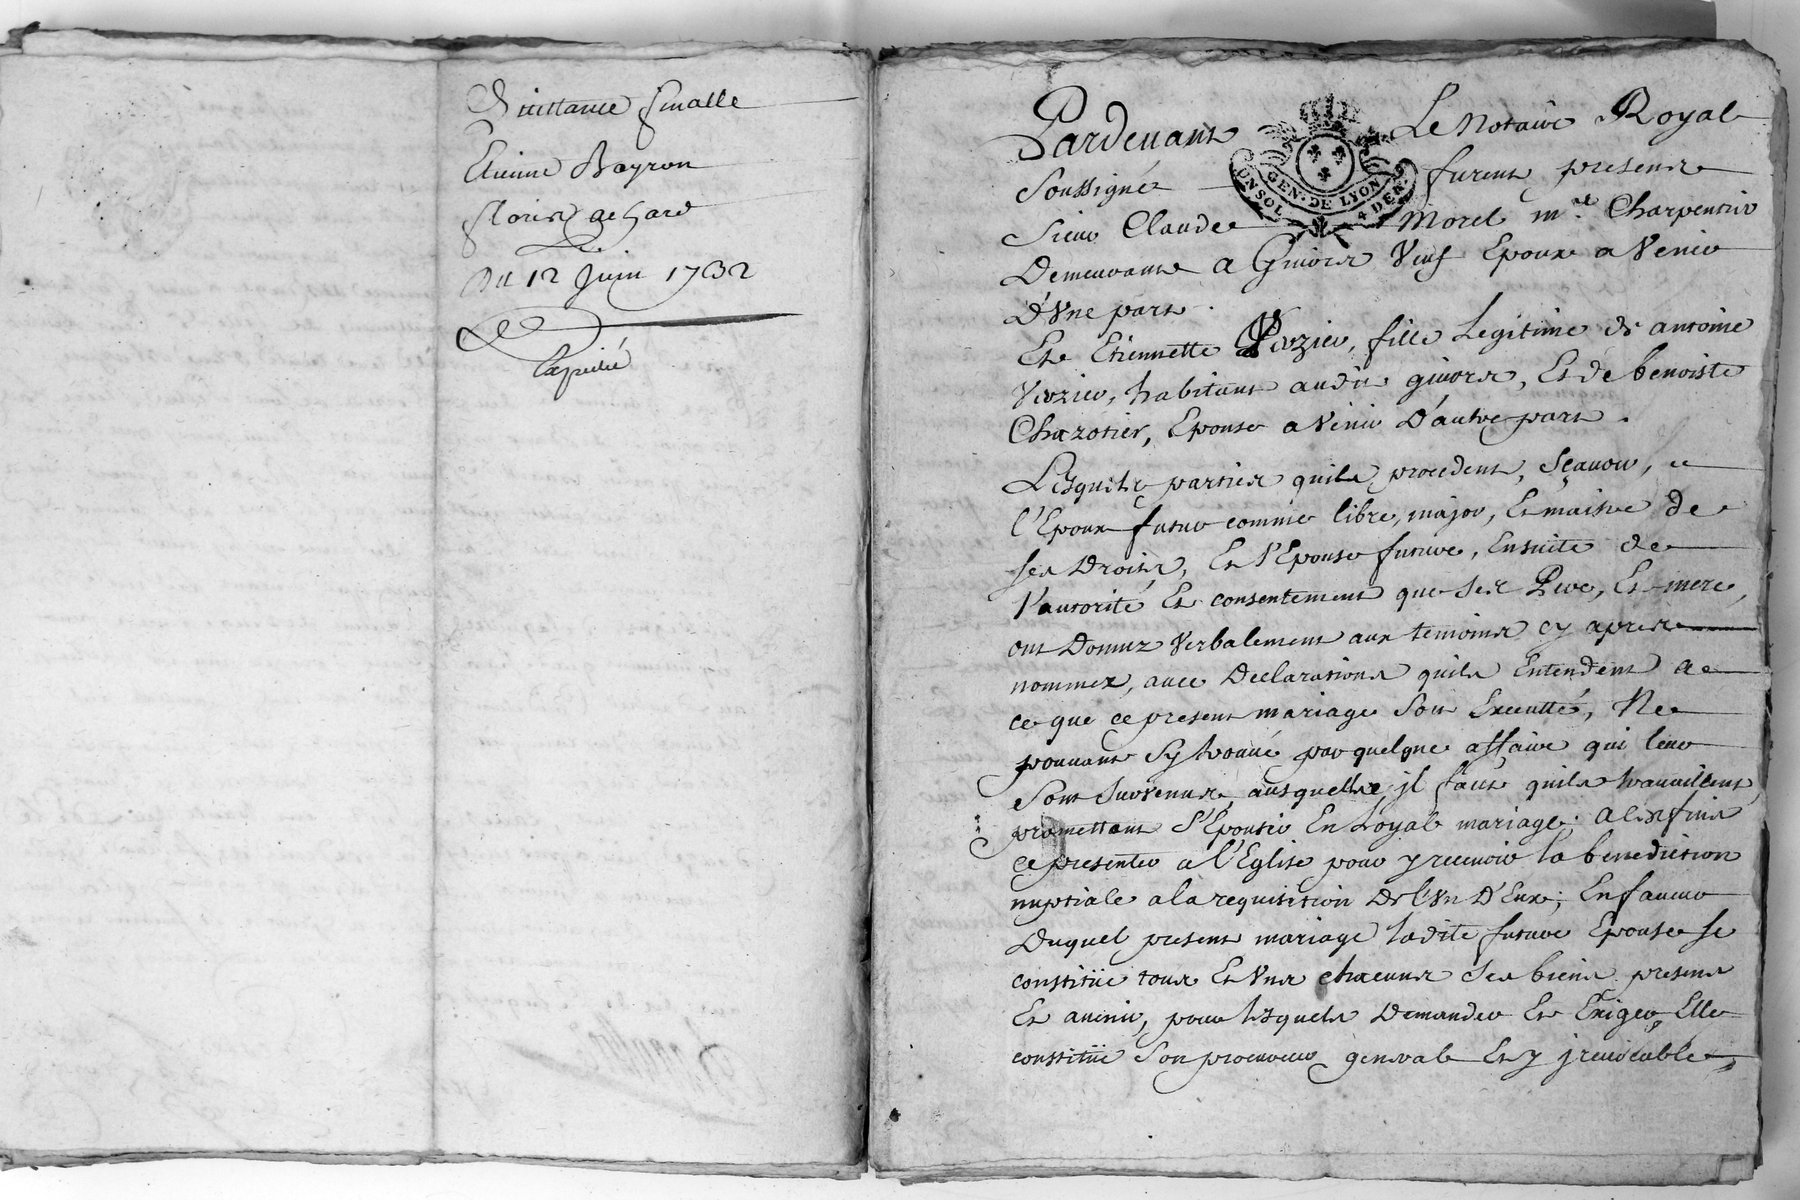 Quittance finalle
Etienne Bayron
floris gehard
Du 12 Juin 1732
Expedié
Pardevant Le Notaire Royal
Soussigné furent presents
GEN. DE LYON
UN SOL 4 DEN.
Sieur Claude Morel mre Charpentier
Demeurant a Givors Veuf Epoux a Venir
D'Vne part.
Et Etiennette Verzier, fille Legitime de antoine
Verzier, habitant audit givors, Et de benoiste
Chazotier, Epouse a Venir D'autre part.
Lesquels parties quils procedent, Sçavoir,
l'Epoux futur comme libre, major, Et maistre de
ses Droits, Et l'Epouse future, Ensuite de
l'autorité Et consentement que ses Pere, Et mere,
ont Donnez Verbalement aux temoins cy apres
nommez, avec Declarations quils Entendent a
ce que ce present mariage Soit Executté, Ne
pouvant Sy trouvé par quelque affaire qui leur
Sont Survenus, ausquelles jl faut quils travaillent,
promettant S'Epouser En Loyal mariage. a les fins
ce presenter a l'Eglise pour y recevoir la benediction
nuptiale a la requisition De l'Vn D'Eux; En faveur
Duquel present mariage ladite future Epouse se
constitüe tous Et Vns chacuns Ses biens presens
Et avenir, pour lesquels Demander Et Exiger, Elle
constitüe Son procureur general Et jrrevocable,